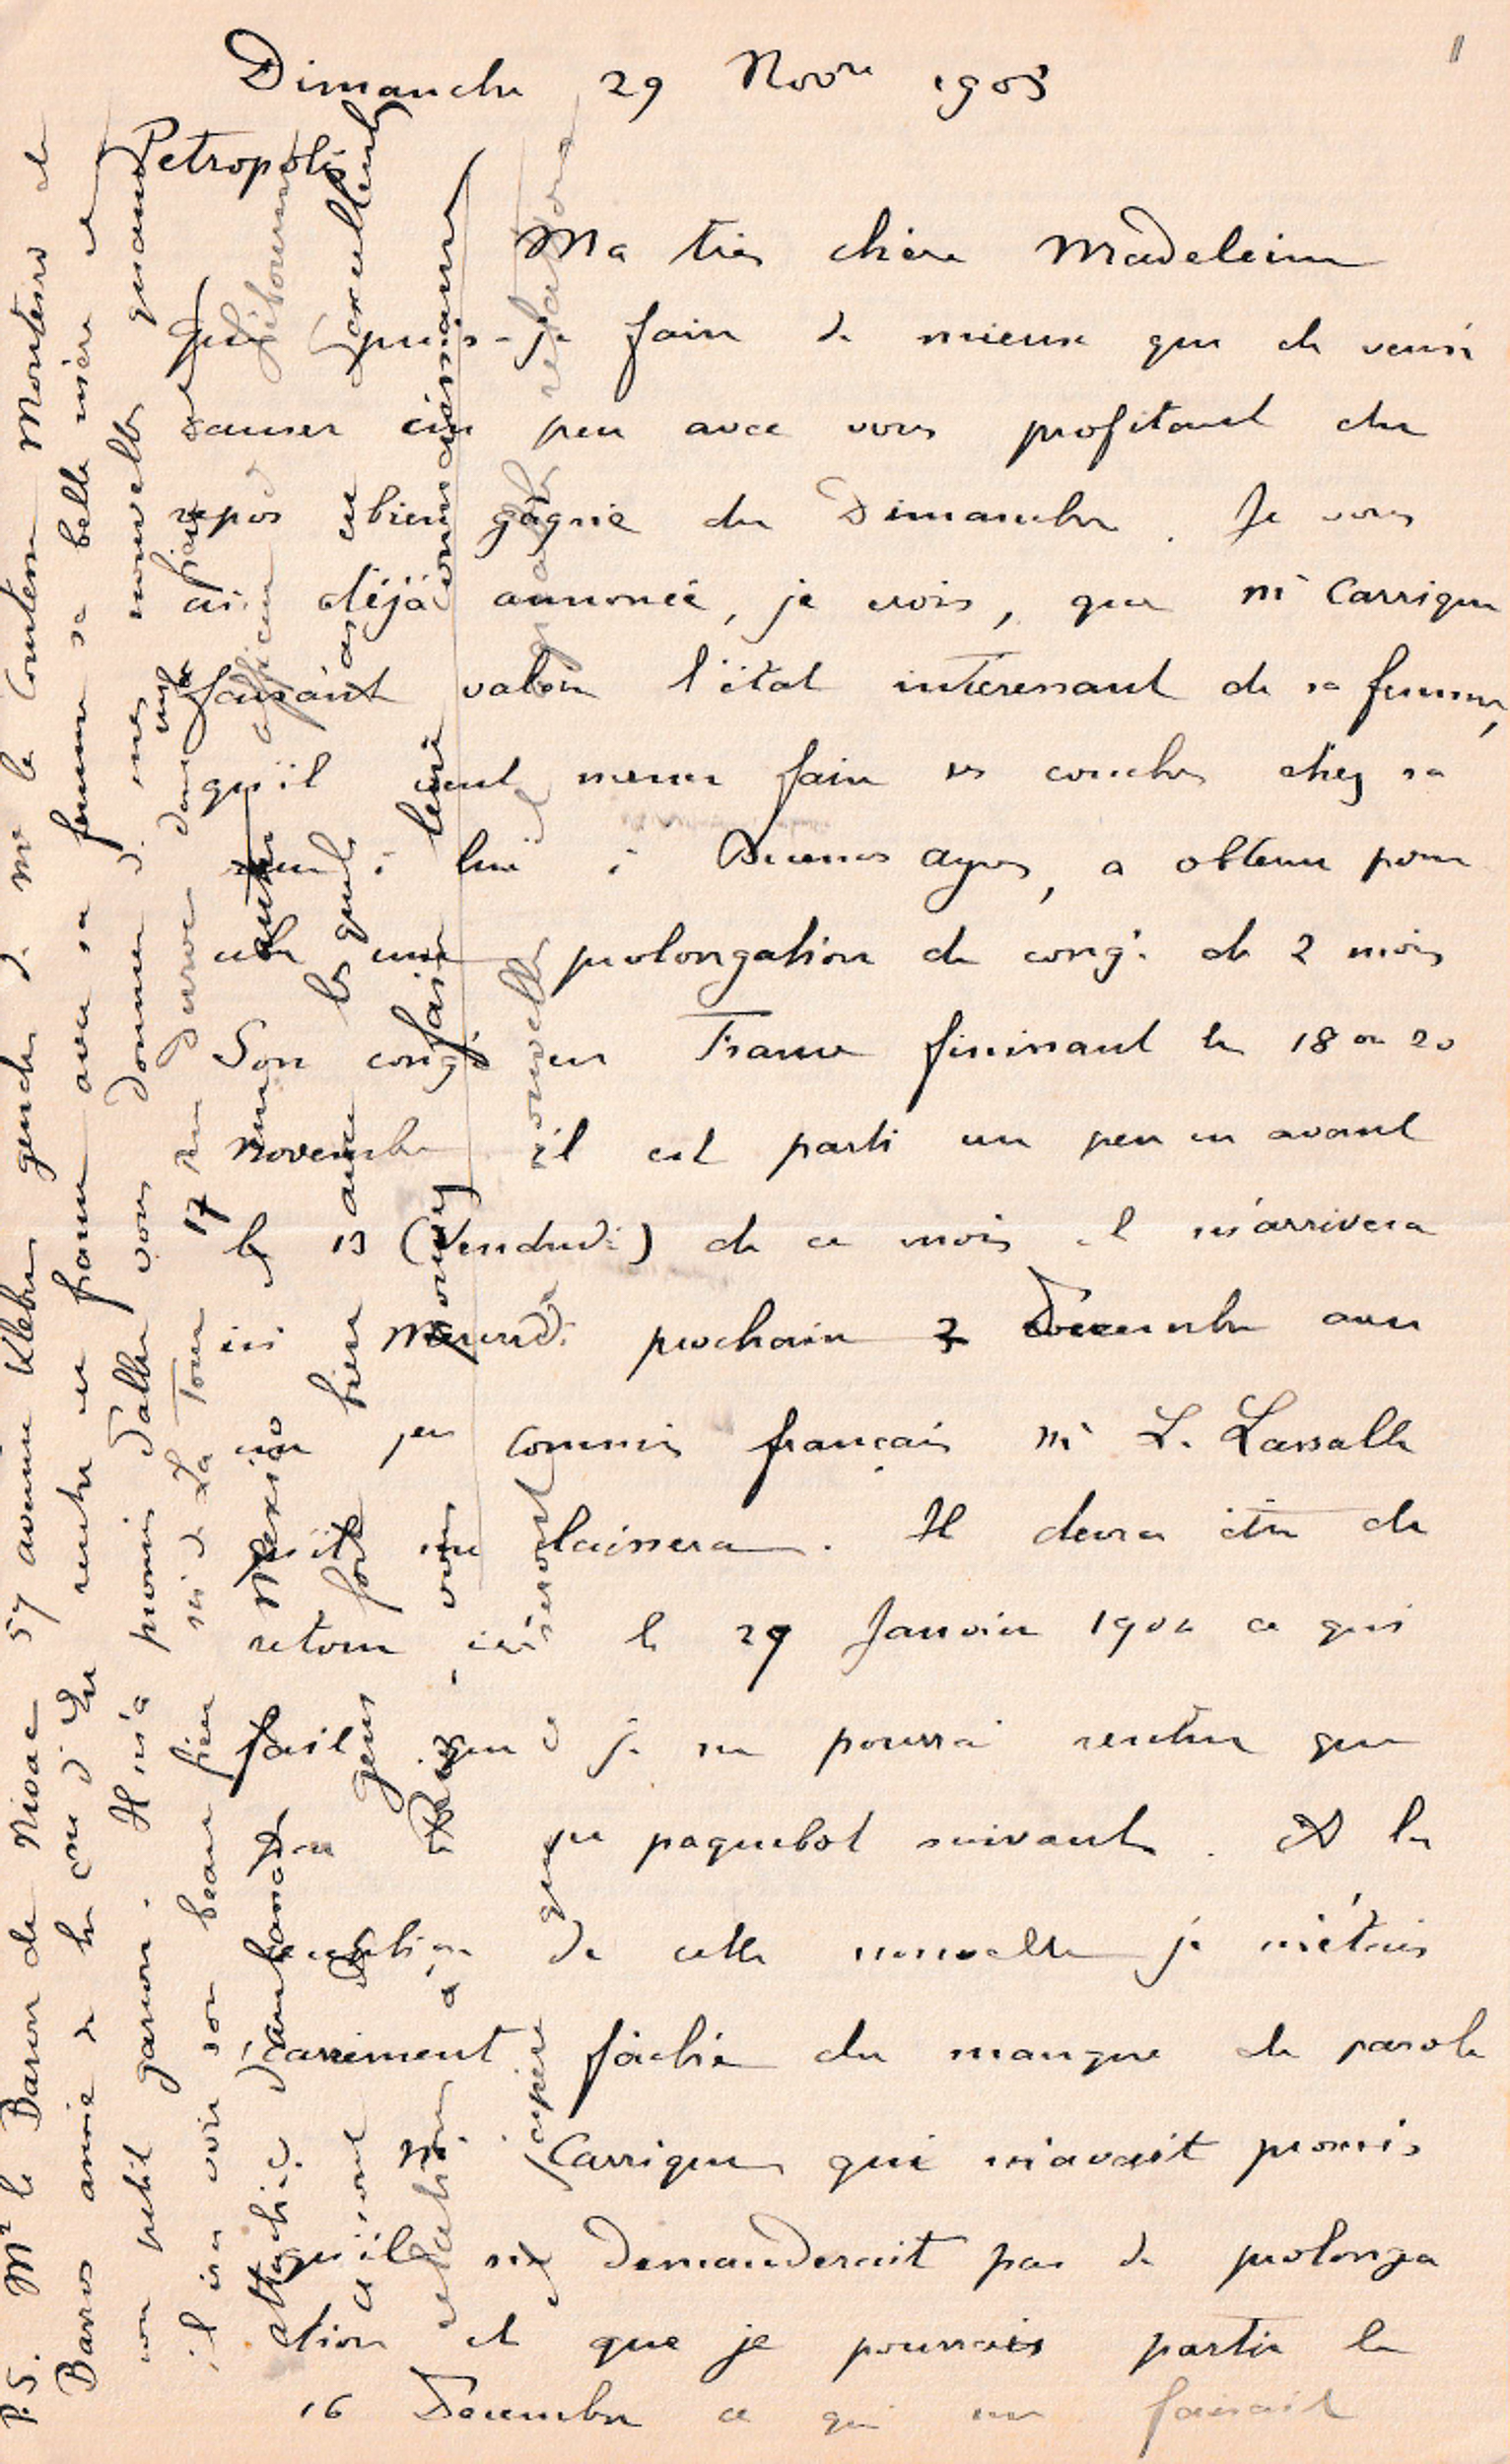 Dimanche 29 Novre 1903
Petropolis
Ma très chère Madeleine
Que puis-je faire de mieux que de venir
causer un peu avec vous profitant du
repos bien gagné du Dimanche. Je vous
ai déjà annoncé, je crois, que Mr Carrique
faisant valoir l'état interessant de sa femme,
qu'il veut mener faire ses couches chez sa
à lui à Buenos Ayres, a obtenu pour
cela une prolongation de congé de 2 mois
Son congé en France finissant le 18 ou 20
novembre il est parti un peu en avant
le 13 (Vendredi) de ce mois et m'arrivera
ici Mercredi prochain 2 Decembre avec
un jeu commis français Mr L. Lassalle
qu'il me laissera. Il devra être de
retour ici le 29 Janvier 1904 ce qui
fait que je ne pourrai rentrer que
par le paquebot suivant. A la
de cette nouvelle je m'étais
carrement fâché du manque de parole
de Mr Carrique qui m'avait promis
qu'il ne demanderait pas de prolonga
tion et que je pourrais partir le
16 Decembre ce qui me faisait
P.S. Mr le Baron de Nioac 57 avenue Kleber gendre de Mme la Comtesse Monteiro de
Barros amie de la Csse d'Eu rentre en France avec sa femme sa belle mère et
son petit garçon. Il m'a promis d'aller vous donner de mes nouvelles quand
il ira voir son beau frère Mr de La Tour 17 rue
attaché d'ambassade Mexico
ce sont des gens fort bien avec lesquels
relations à Rio, vous pouvez faire leur connaissance
et j'espère que seront nouvelles relations